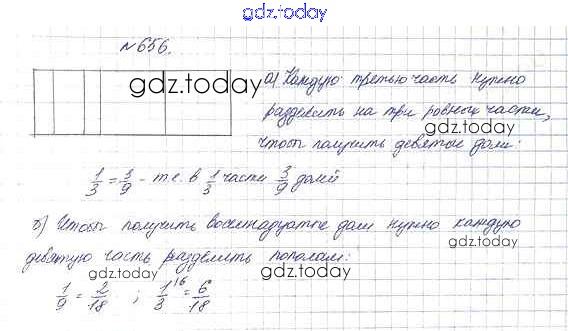 gdz.today
№656.
gdz.today
а) Каждую третью часть нужно
разделить на три равных части,
gdz.today
чтобы получить девятые доли:
1/3 = 3/9 - т.е. в 1/3 части 3/9 долей
б) Чтобы получить восемнадцатые доли нужно каждую
gdz.today
девятую часть разделить пополам:
gdz.today
gdz.today
1/9 = 2/18 ; 1/3 \6 = 6/18